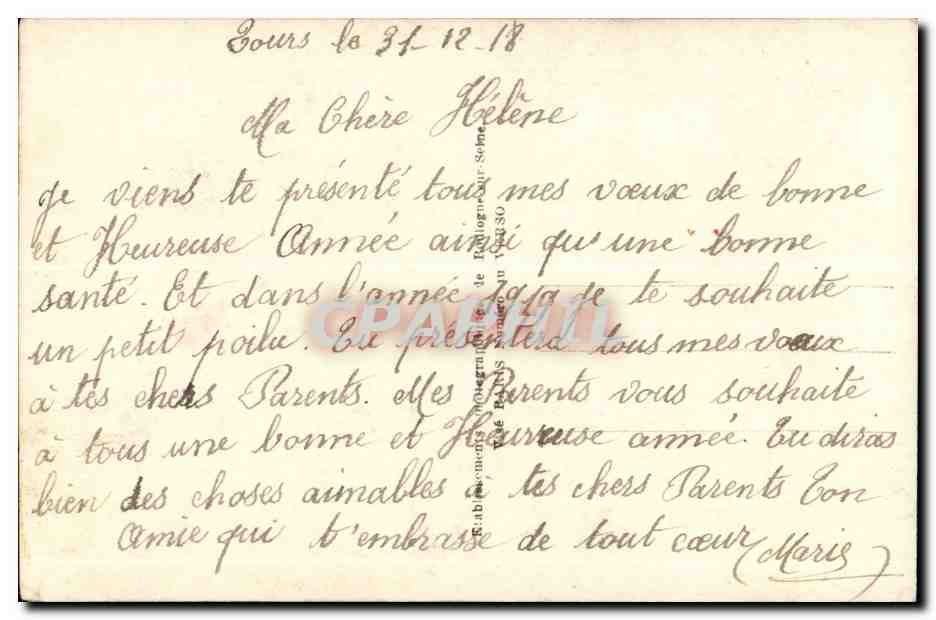 Tours le 31-12-18
Ma Chère Hélène
Je viens te présenté tous mes vœux de bonne
et Heureuse Année ainsi qu'une bonne
santé. Et dans l'année 1919 je te souhaite
un petit poilu. Tu présentera tous mes vœux
à tes chers Parents. Mes Parents vous souhaite
à tous une bonne et Heureuse année. Tu diras
bien des choses aimables à tes chers Parents Ton
Amie qui t'embrasse de tout cœur
Marie
Etablissements photographiques de Boulogne-sur-Seine
Visé PARIS numéro au VERSO
CPAPHIL